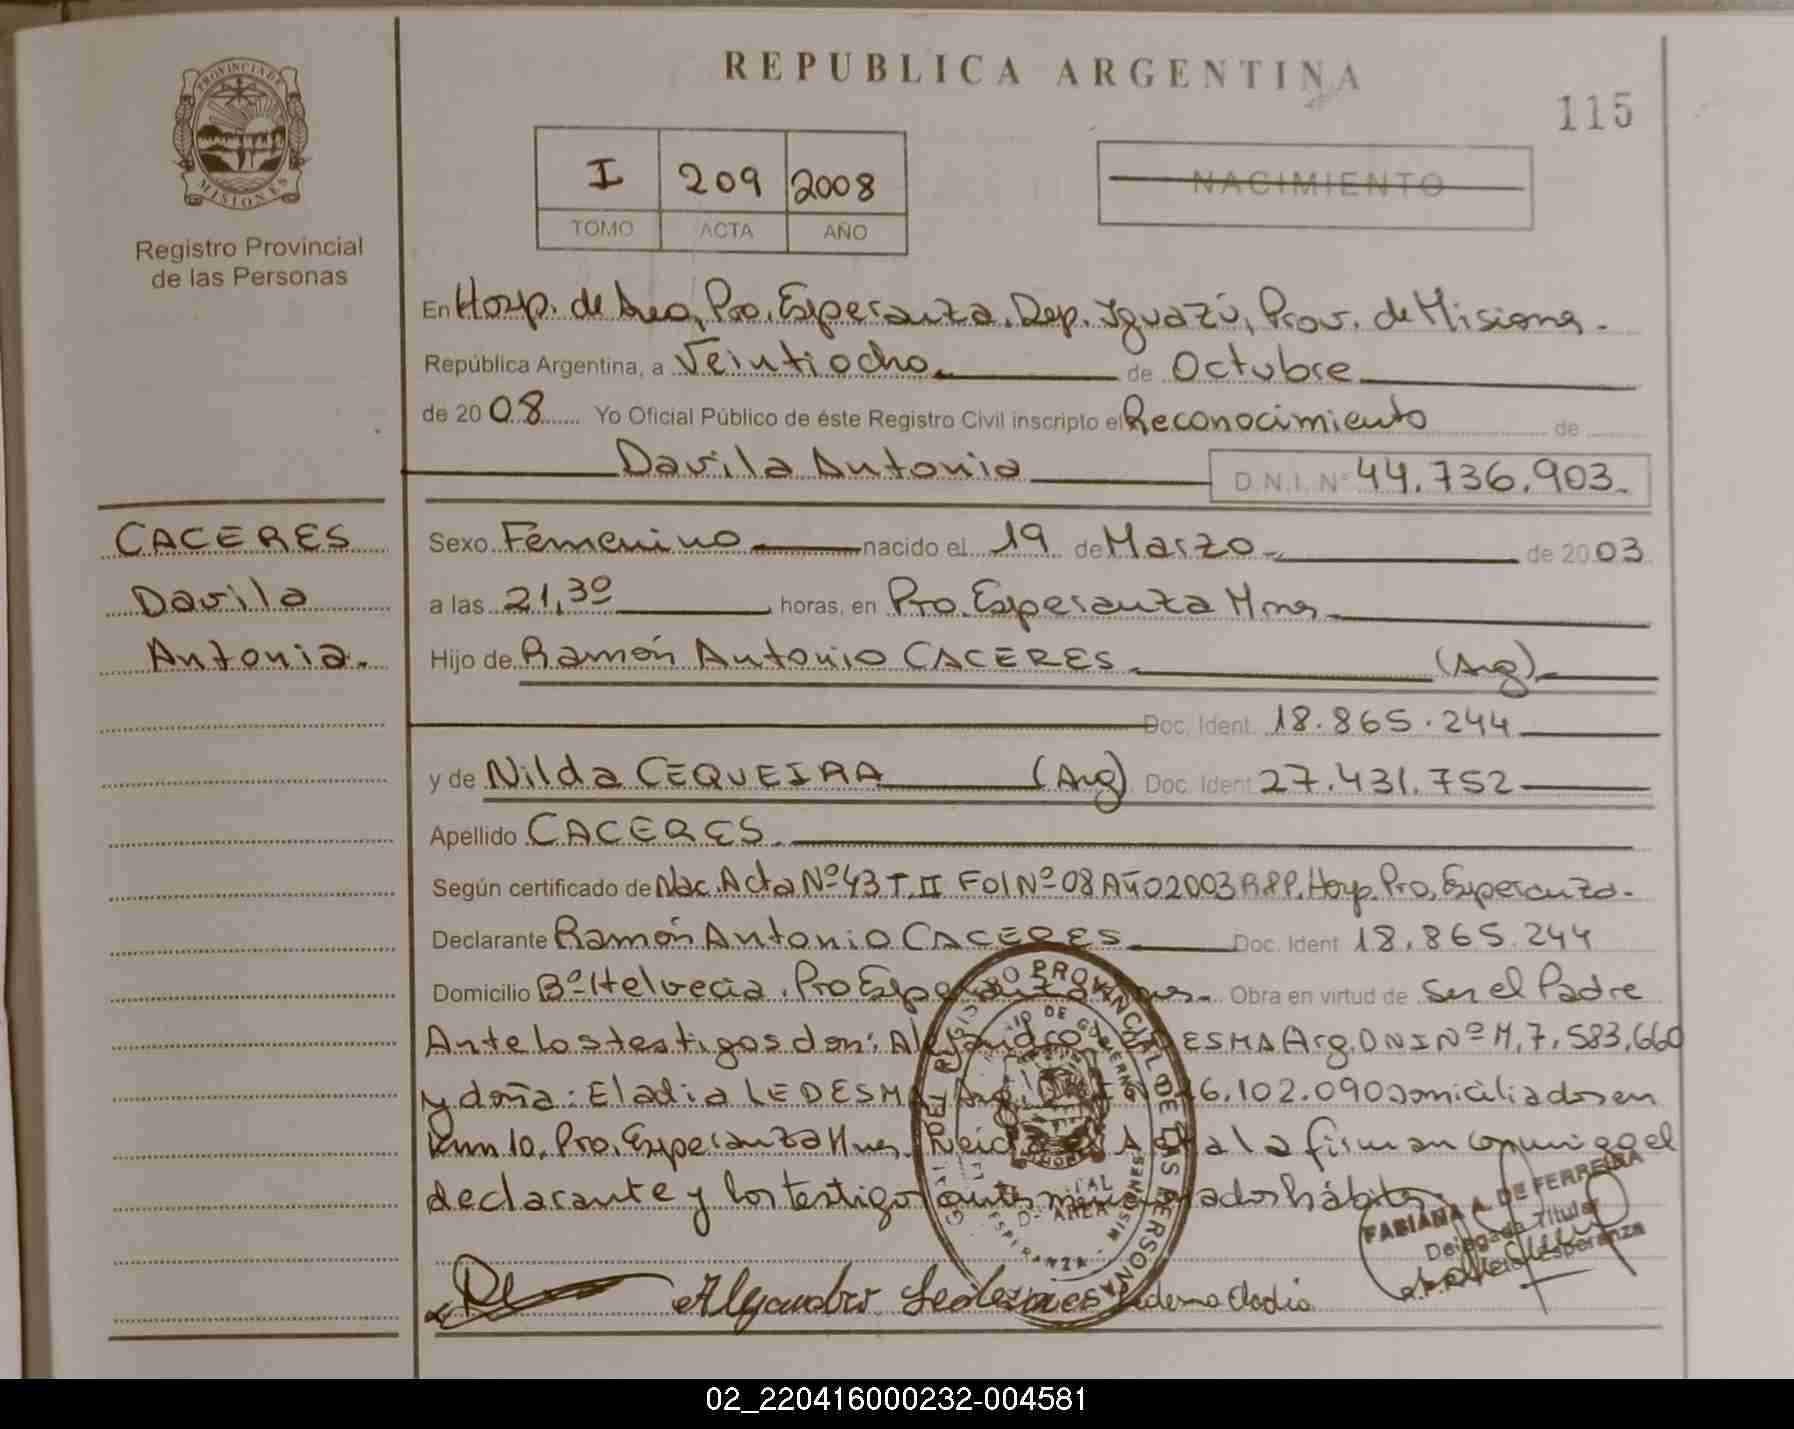 REPUBLICA ARGENTINA
115
PROVINCIA DE
MISIONES
Registro Provincial
de las Personas
I 209 2008
TOMO ACTA AÑO
NACIMIENTO
En Hosp. de Area, Pto. Esperanza, Dep. Iguazú, Prov. de Misiones.
República Argentina, a Veintiocho de Octubre
de 2008 Yo Oficial Público de éste Registro Civil inscripto el Reconocimiento de
Davila Antonia D.N.I. Nº 44.736.903.
CACERES
Davila
Antonia.
Sexo Femenino nacido el 19 de Marzo de 2003
a las 21,30 horas, en Pto. Esperanza Mnes
Hijo de Ramón Antonio CACERES (Arg)
Doc. Ident. 18.865.244
y de Nilda CEQUEIRA (Arg) Doc. Ident 27.431.752
Apellido CACERES.
Según certificado de Nac. Acta Nº 43 T. II Fol Nº 08 Año 2003 RPP. Hosp. Pto. Esperanza.
Declarante Ramón Antonio CACERES Doc. Ident 18.865.244
Domicilio Bº Helvecia. Pto Obra en virtud de Ser el Padre
Ante los testigos don: Alejandro Arg. DNI Nº M. 7.583.660
y doña: Eladia LEDESMA Arg. 6.102.090 Domiciliados en
km 10. Pto. Esperanza Mnes. la firman conmigo el
declarante y los testigos antes hábiles.
REGISTRO PROVINCIAL DE LAS PERSONAS
ESPERANZA - MISIONES
FABIANA A. DE FERREIRA
Delegada Titular
Esperanza
Alejandro Ledesma
02_220416000232-004581